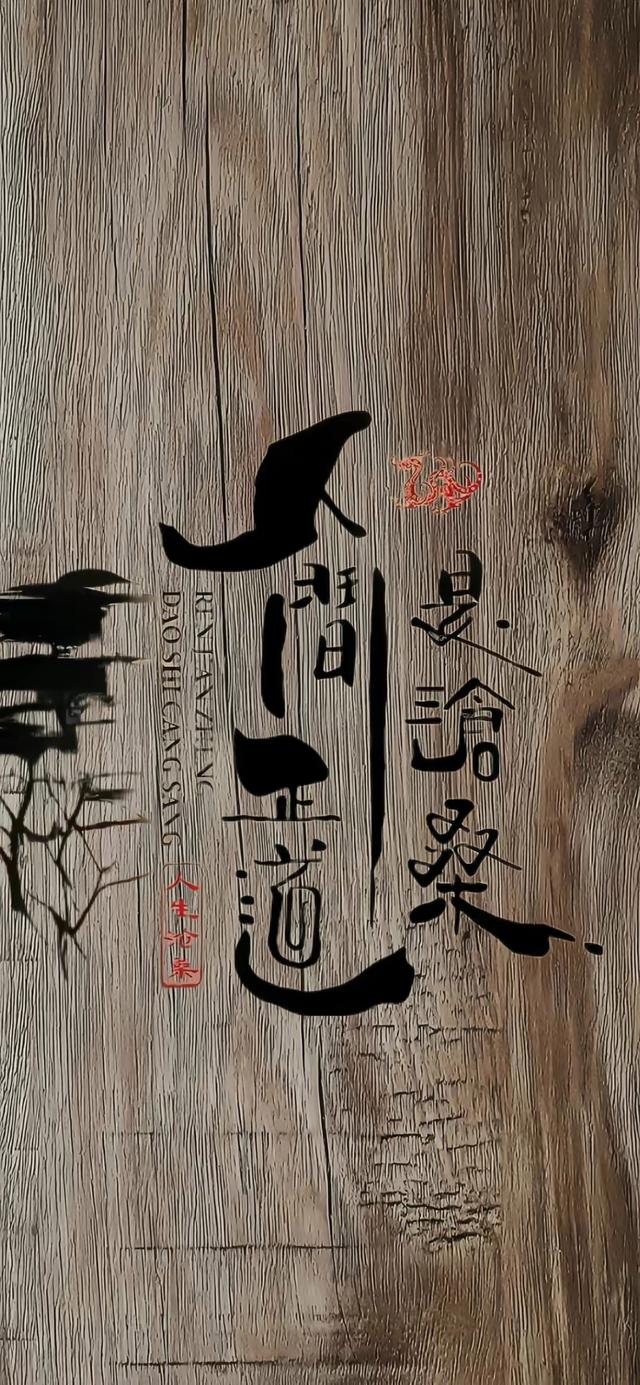 人間正道
是滄桑
REN JIAN ZHENG
DAO SHI CANG SANG
人生沧桑